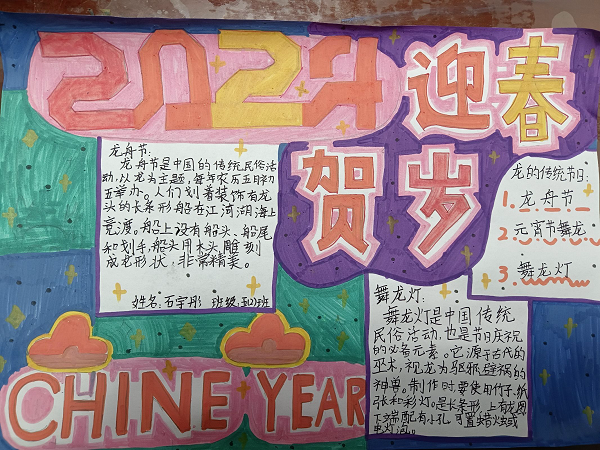 2024
迎春
贺岁
龙舟节:
龙舟节是中国的传统民俗活
动,以龙为主题,每年农历五月初
五举办。人们划着装饰有龙
头的长条形船在江河湖海上
竞渡。船上设有船头、船尾
和划手,船头用木头雕刻
成龙形状,非常精美。
姓名:石宇彤 班级:
龙的传统节日:
1.龙舟节
2.元宵节舞龙
3.舞龙灯
舞龙灯:
舞龙灯是中国传统
民俗活动,也是节日庆祝
的必备元素。它源于古代的
巫术,视龙为驱邪避祸的
神兽。制作时要使用竹子、纸
张和彩灯。是长条形,上有龙图
下端配有小孔,可置蜡烛或
电灯泡。
CHINE YEAR